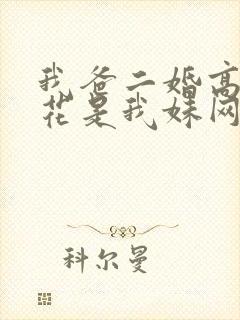 我爸二婚高
花是我妹网
科尔曼